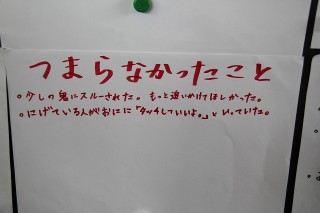 つまらなかったこと
。少しの鬼にスルーされた。もっと追いかけてほしかった。
。にげている人がおにに「タッチしていいよ。」といっていた。